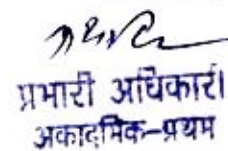 प्रभारी अधिकारी
अकादमिक-प्रथम